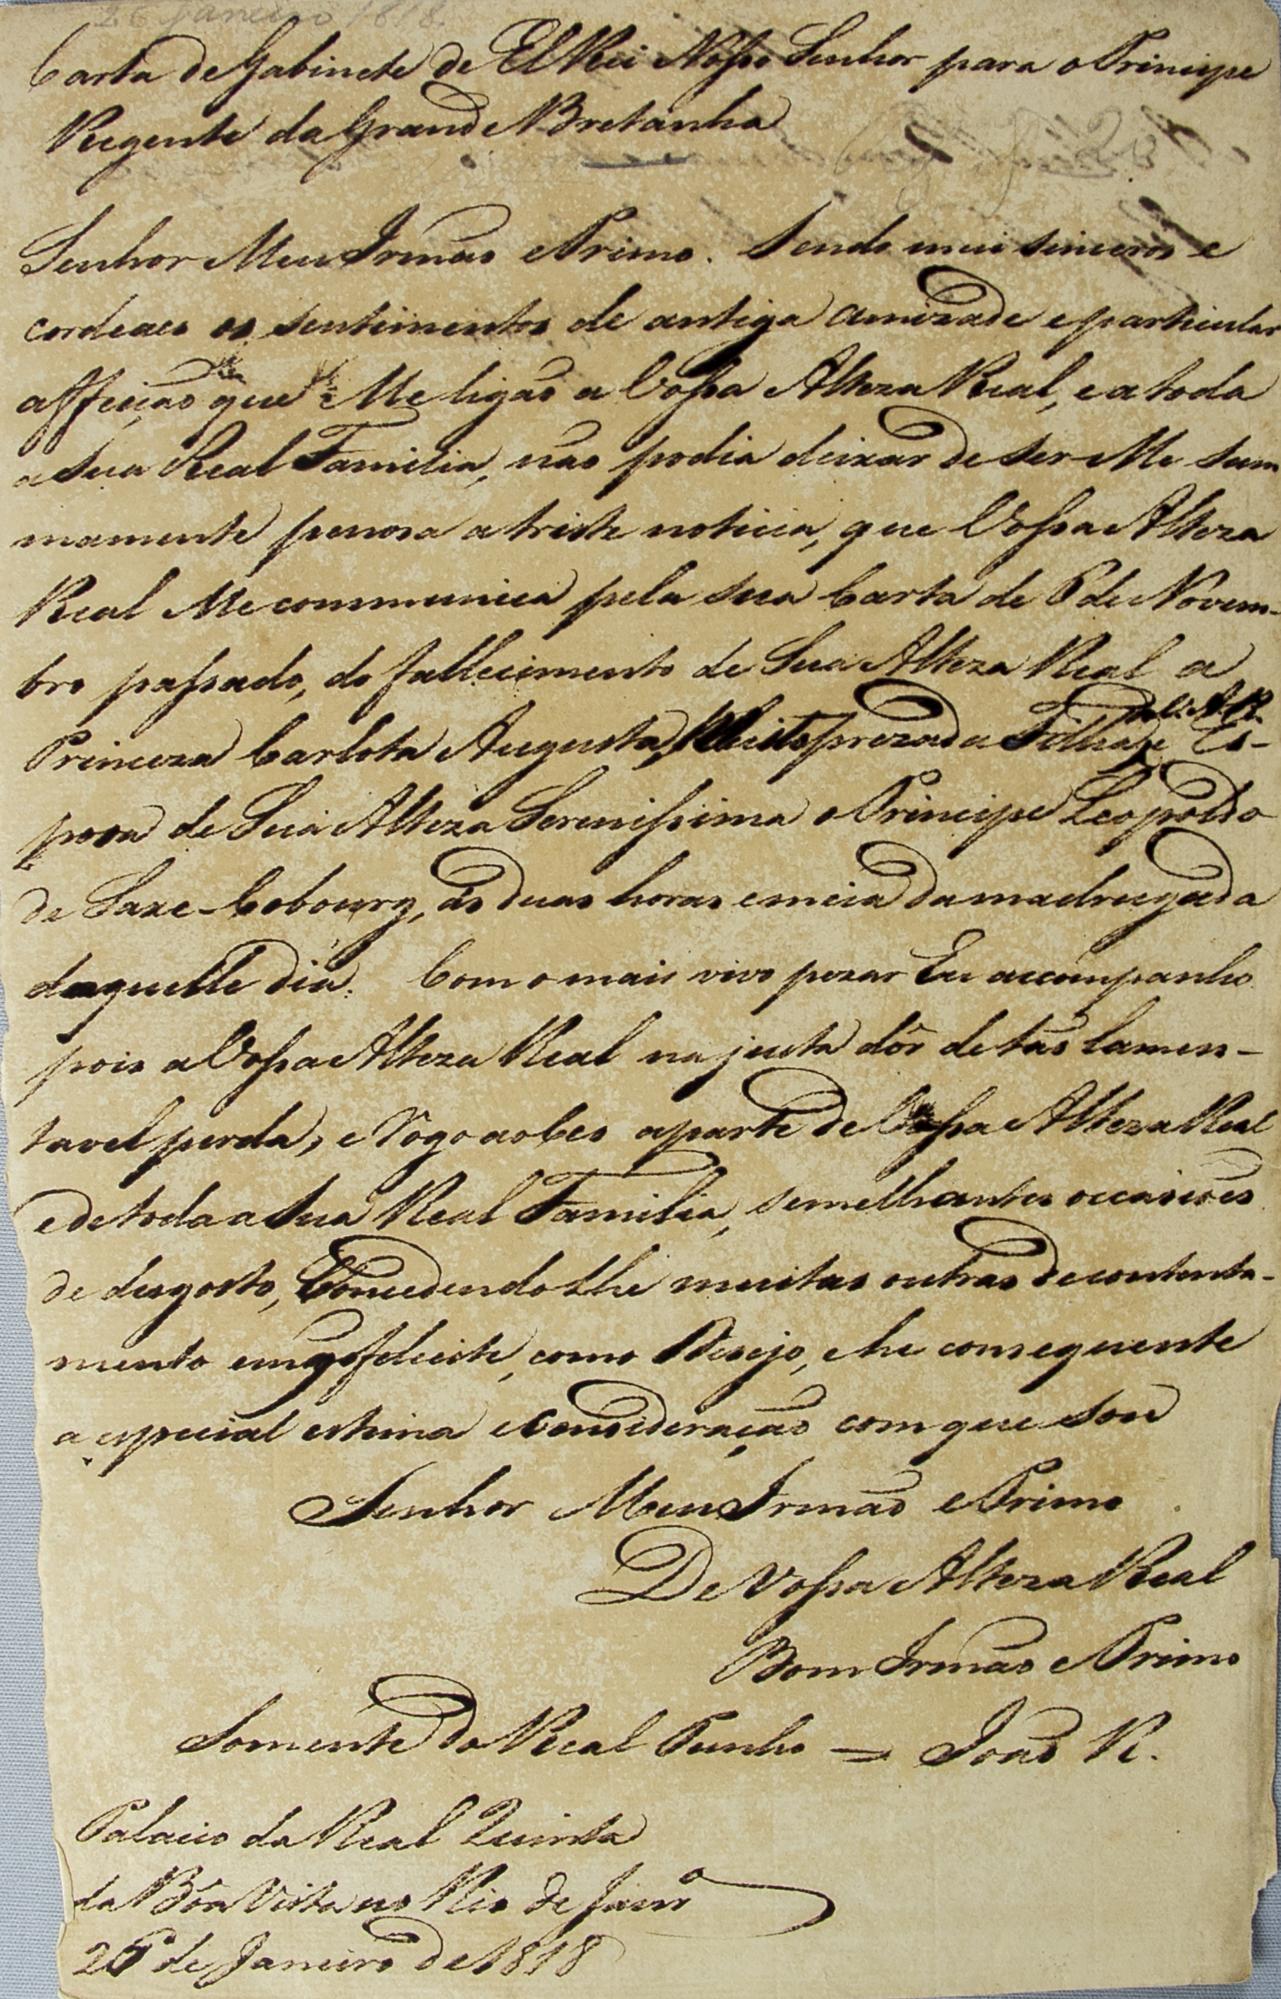 26 Janeiro 1818
Carta de Gabinete de El Rei Nosso Senhor para o Principe
Regente da Grande Bretanha
Senhor Meu Irmão e Primo. Sendo mui sinceros e
cordeaes os sentimentos de antiga amizade e particular
affeição que Me ligão a Vossa Alteza Real, e a toda
a Sua Real Familia, não podia deixar de ser-Me sum
mamente penosa a triste noticia, que Vossa Alteza
Real Me communica pela sua Carta de 6 de Novem-
bro passado, do fallecimento de Sua Alteza Real a
Princeza Carlota Augusta, Muito prezada Filha de V. A. R. e Es-
posa de Sua Alteza Serenissima o Principe Leopoldo
de Saxe-Cobourg, ás duas horas e meia da madrugada
daquelle dia. Com o mais vivo pezar Eu accompanho
pois a Vossa Alteza Real na justa dôr de tão lamen-
tavel perda, e Rógo ao Ceo aparte de Vossa Alteza Real
e de toda a Sua Real Familia, semelhantes occasiões
de desgosto, Concedendo-lhe muitas outras de contenta-
mento como Desejo, e he consequente
a especial estima e Consideração com que sou
Senhor Meu Irmão e Primo
De Vossa Alteza Real
Bom Irmão e Primo
Somente do Real Punho = João R.
Palacio da Real Quinta
da Bôa Vista no Rio de Janrº
26 de Janeiro de 1818